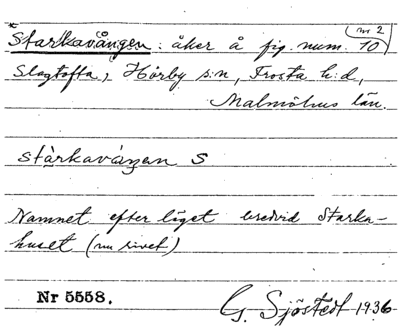 Starkavången: åker å fig. num. 10 (m 2)
Slagtofta, Hörby s:n, Frosta h:d,
Malmöhus län.
stàrkaváŋen S
Namnet efter läget bredvid Starka-
huset (nu rivet)
Nr 5558. G. Sjöstedt 1936